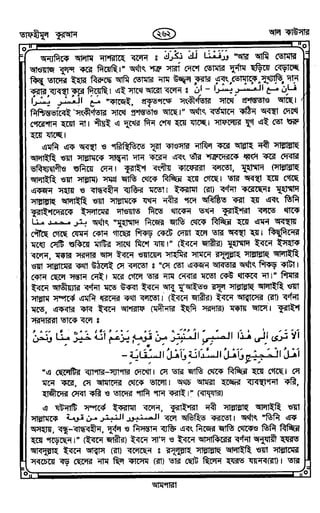 তাফহীমুল কুরআন
২৬২
আল কাউসার
অন্যদিকে আলাম নাশরাহে বলেন : وَرَفَعْنَا لَكَ ذِكْرَكَ "আর আমি তোমার
আওয়াজ বুলন্দ করে দিয়েছি।" অর্থাৎ শত্রু সারা দেশে তোমার দুর্নাম ছড়িয়ে বেড়াচ্ছে
কিন্তু তাদের ইচ্ছার বিরুদ্ধে আমি তোমার নাম উজ্জ্বল করার এবং তোমাকে সুখ্যাতি দান
করার ব্যবস্থা করে দিয়েছি। এই সাথে আরো বলেন : فَإِنَّ مَعَ الْعُسْرِ يُسْرًا إِنَّ
مَعَ الْعُسْرِ يُسْرًا "কাজেই, প্রকৃতপক্ষে সংকীর্ণতার সাথে প্রশস্ততাও আছে।
নিশ্চিতভাবেই সংকীর্ণতার সাথে প্রশস্ততাও আছে।" অর্থাৎ বর্তমানে কঠিন অবস্থা দেখে
পেরেশান হয়ো না। শীঘ্রই এ দুঃখের দিন শেষ হয়ে যাচ্ছে। সাফল্যের যুগ এই তো শুরু
হয়ে যাচ্ছে।
এমনি এক অবস্থা ও পরিস্থিতিতে সূরা কাওসার নাযিল করে আল্লাহ নবী সাল্লাল্লাহু
আলাইহি ওয়া সাল্লামকে সান্ত্বনা দান করেন এবং তাঁর শত্রুদেরকে ধ্বংস করে দেবার
ভবিষ্যদ্বাণীও শুনিয়ে দেন। কুরাইশ বংশীয় কাফেররা বলতো, মুহাম্মাদ (সাল্লাল্লাহু
আলাইহি ওয়া সাল্লাম) সমগ্র জাতি থেকে বিচ্ছিন্ন হয়ে গেছে। তার অবস্থা হয়ে গেছে
একজন সহায় ও বান্ধবহীন ব্যক্তির মতো। ইকরামা (রা) বর্ণনা করেছেনঃ মুহাম্মাদ
সাল্লাল্লাহু আলাইহি ওয়া সাল্লামকে যখন নবীর পদে অধিষ্ঠিত করা হয় এবং তিনি
কুরাইশদেরকে ইসলামের দাওয়াত দিতে থাকেন তখন কুরাইশরা বলতে থাকে
بتر محمد منا অর্থাৎ "মুহাম্মাদ নিজের জাতি থেকে বিচ্ছিন্ন হয়ে এমন অবস্থায়
পৌঁছে গেছে যেমন কোন গাছের শিকড় কেটে দেয়া হলে তার অবস্থা হয়। কিছুদিনের
মধ্যে সেটি শুকিয়ে মাটির সাথে মিশে যায়।" (ইবনে জারীর) মুহাম্মাদ ইবনে ইসহাক
বলেন, মক্কার সরদার আস ইবনে ওয়ায়েল সাহমির সামনে রসূলুল্লাহ সাল্লাল্লাহু আলাইহি
ওয়া সাল্লামের কথা উঠলেই সে বলতো : "সে তো একজন আবতার অর্থাৎ শিকড় কাটা।
কোন ছেলে সন্তান নেই। মরে গেলে তার নাম নেবার মতো কেউ থাকবে না।" শিমার
ইবনে আতীয়্যার বর্ণনা মতে উকবা ইবনে আবু মু'আইতও রসূল সাল্লাল্লাহু আলাইহি ওয়া
সাল্লাম সম্পর্কে এমনি ধরনের কথা বলতো। (ইবনে জারীর) ইবনে আব্বাসের (রা) বর্ণনা
মতে, একবার কাব ইবনে আশরাফ (মদীনার ইহুদি সরদার) মক্কায় আসে। কুরাইশ
সরদাররা তাকে বলে :
اَلَا تَرٰى اِلٰى هٰذَا الصَّبِيِّ الْمُنْبَتِرِ مِنْ قَوْمِهٖ يَزْعَمُ اَنَّهٗ خَيْرٌ مِّنَّا وَنَحْنُ
اَهْلُ الْحَجِيْجِ وَاَهْلُ السَّدَانَةِ وَاَهْلُ السِّقَايَةِ -
"এ ছেলেটির ব্যাপার-স্যাপার দেখো। সে তার জাতি থেকে বিচ্ছিন্ন হয়ে গেছে। সে
মনে করে, সে আমাদের থেকে ভালো। অথচ আমরা হজ্জের ব্যবস্থাপনা করি,
হাজীদের সেবা করি ও তাদের পানি পান করাই।" (বায্‌যার)
এ ঘটনাটি সম্পর্কে ইকরামা বলেন, কুরাইশরা নবী সাল্লাল্লাহু আলাইহি ওয়া
সাল্লামকে الصنبور المنبتر من قومه বলে অভিহিত করতো। অর্থাৎ "তিনি এক
অসহায়, বন্ধু-বান্ধবহীন, দুর্বল ও নিঃসন্তান ব্যক্তি এবং নিজের জাতি থেকেও তিনি বিচ্ছিন্ন
হয়ে পড়েছেন।" (ইবনে জারীর) ইবনে সা'দ ও ইবনে আসাকিরের বর্ণনা অনুযায়ী হযরত
আবদুল্লাহ ইবনে আব্বাস (রা) বলেছেন : রসূলুল্লাহ সাল্লাল্লাহু আলাইহি ওয়া সাল্লামের
সবচেয়ে বড় ছেলের নাম ছিল কাসেম (রা) তার ছোট ছিলেন হযরত যয়নব(রা)। তার
আমপারা